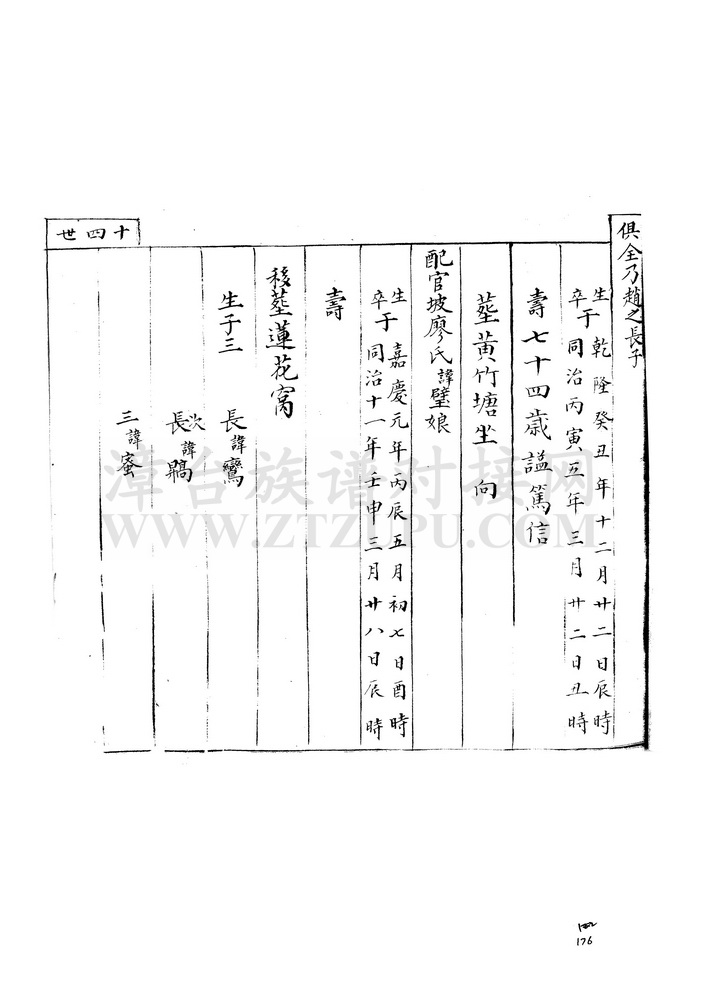 俱全乃趙之長子
生于乾隆癸丑年十二月廿二日辰時
卒于同治丙寅五年三月廿二日丑時
壽七十四歲謚篤信
塟黃竹塘坐 向
配官坡廖氏諱璧娘
生于嘉慶元年丙辰五月初七日酉時
卒于同治十一年壬申三月廿八日辰時
壽
移塟蓮花窩
生子三 長諱鸞
長次諱鶮
三諱蜜
十四世
漳台族谱对接网
WWW.ZTZUPU.COM
176